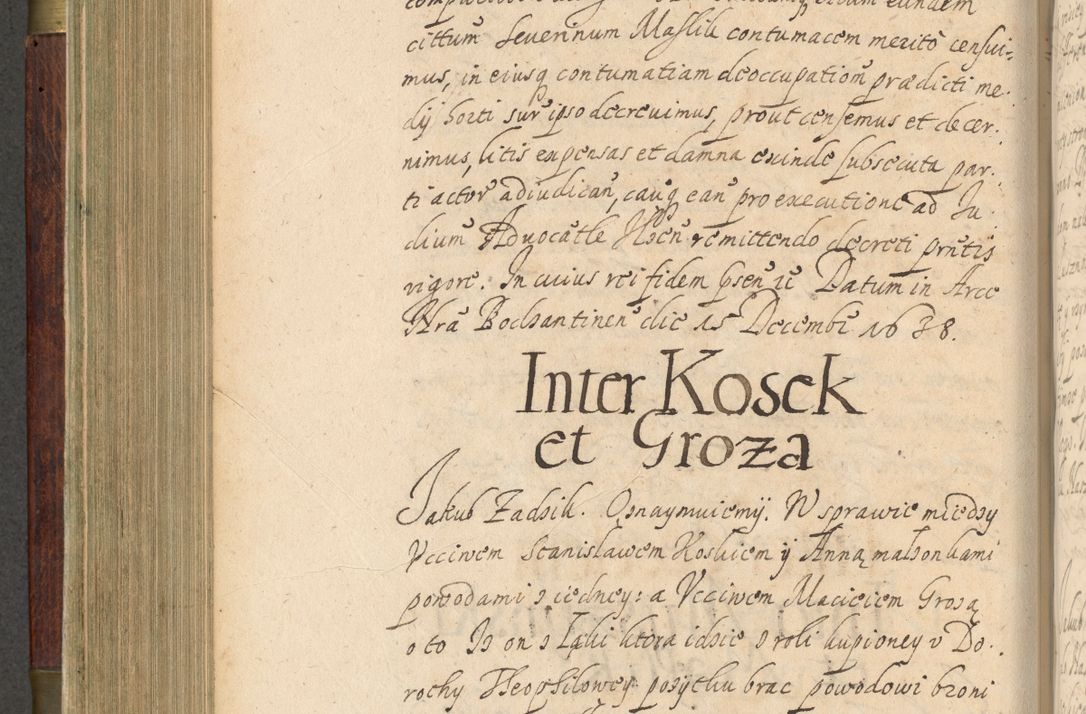 cittum Severinum Maslik contumacem merito censui=
mus, in eiusq contumatiam deoccupation prædicti me.
dij horti sur ipso decrevimus, prout censemus et decer.
nimus, litis expensas et damna exinde subsecuta par.
ti actor adiudican, caug ean pro executione ad Ju.
dicium Advocatle Hoen remittendo decreti prntis
vigore. In cuius rei fidem psen ic Datum in Arce
Nra Bodzantinen die 15 Decemb 1638.
Inter Kosek
et Groza
Jakub Zadzik. Oznaymuiemÿ. W sprawie miedzy
Vcciwem Stanislawem Koskiem ÿ Anną malzonkami
powodami z iedney: a Vcciwem Macieiem Grozą
o to Iz on z Łąki ktora idzie z roli kupioney v Do.
rothy Theophilowey pozytku brac powodowi bzoni